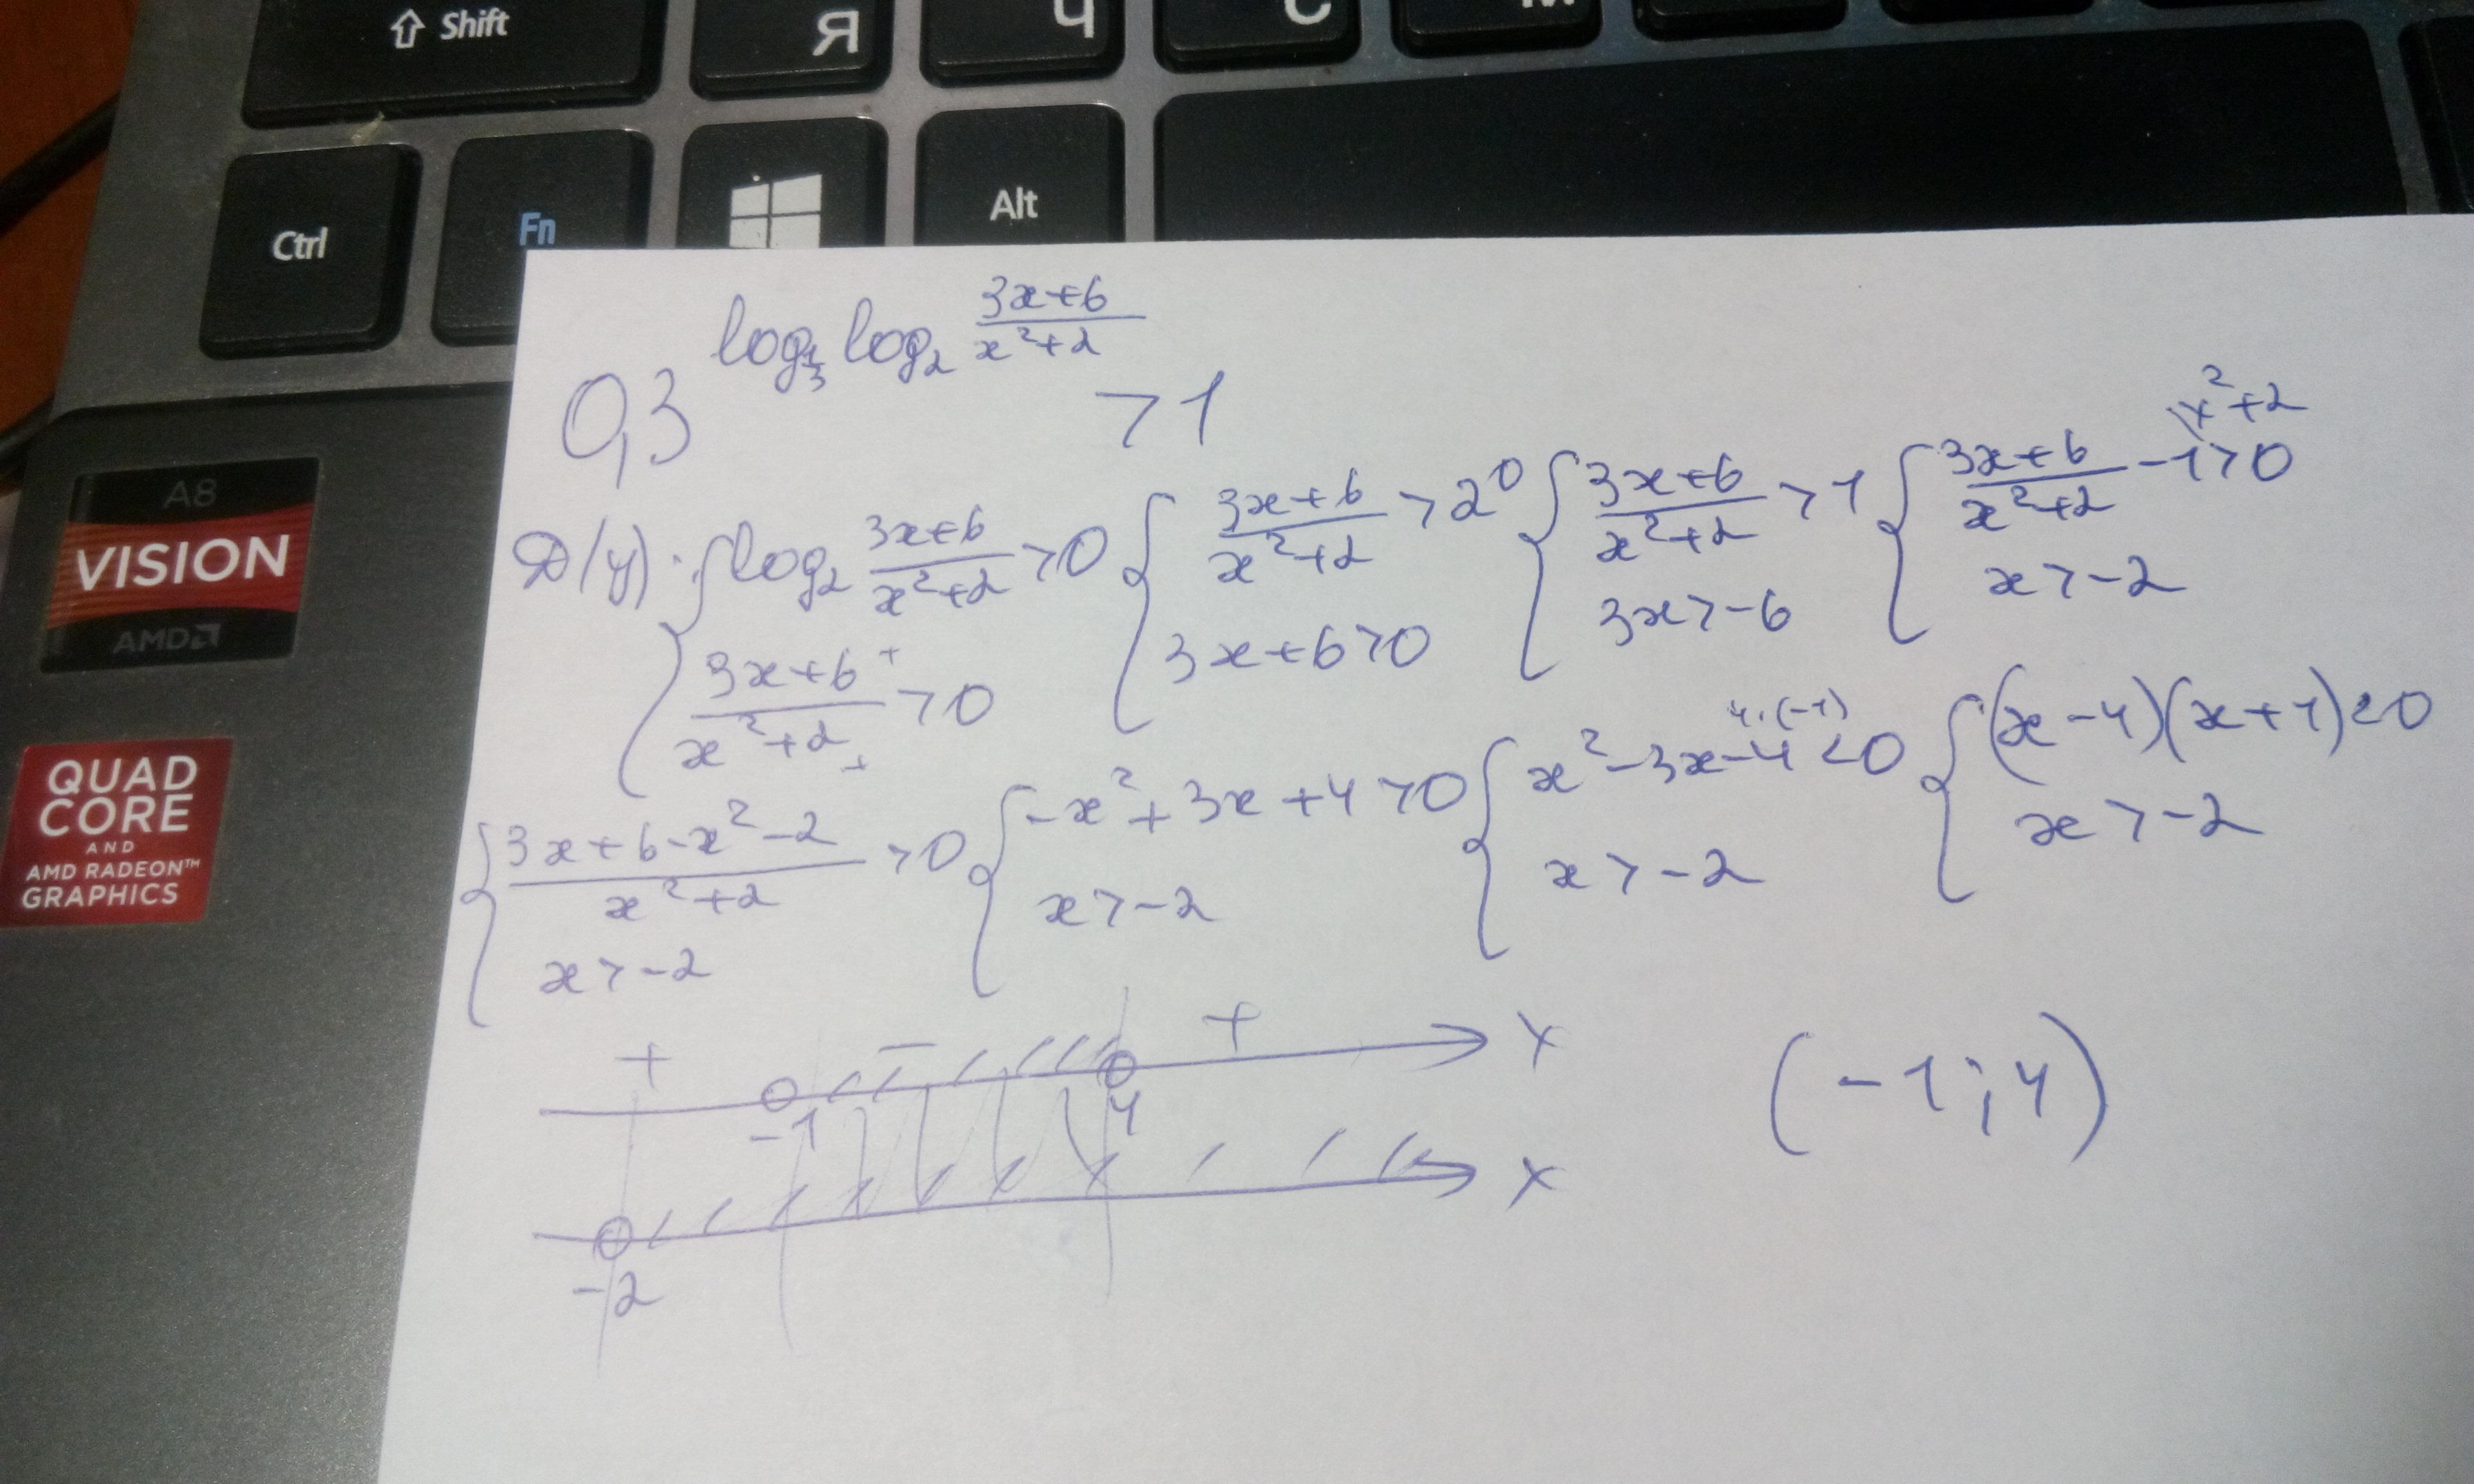 ⇧ Shift Я Ч С М
Ctrl Fn Alt
A8
VISION
AMD
QUAD
CORE
AND
AMD RADEON™
GRAPHICS
0,3^(log_(1/3) log_2 (3x+6)/(x²+2)) > 1
D(y): { log_2 (3x+6)/(x²+2) > 0 { (3x+6)/(x²+2) > 2⁰ { (3x+6)/(x²+2) > 1 { (3x+6)/(x²+2) - 1\x²+2 > 0
(3x+6)+/(x²+2)+ > 0 3x+6>0 3x>-6 x>-2
{ (3x+6-x²-2)/(x²+2) > 0 { -x²+3x+4>0 { x²-3x-4<0 4·(-1) { (x-4)(x+1)<0
x>-2 x>-2 x>-2 x>-2
+ - + x
-1 4
(-1;4)
x
-2